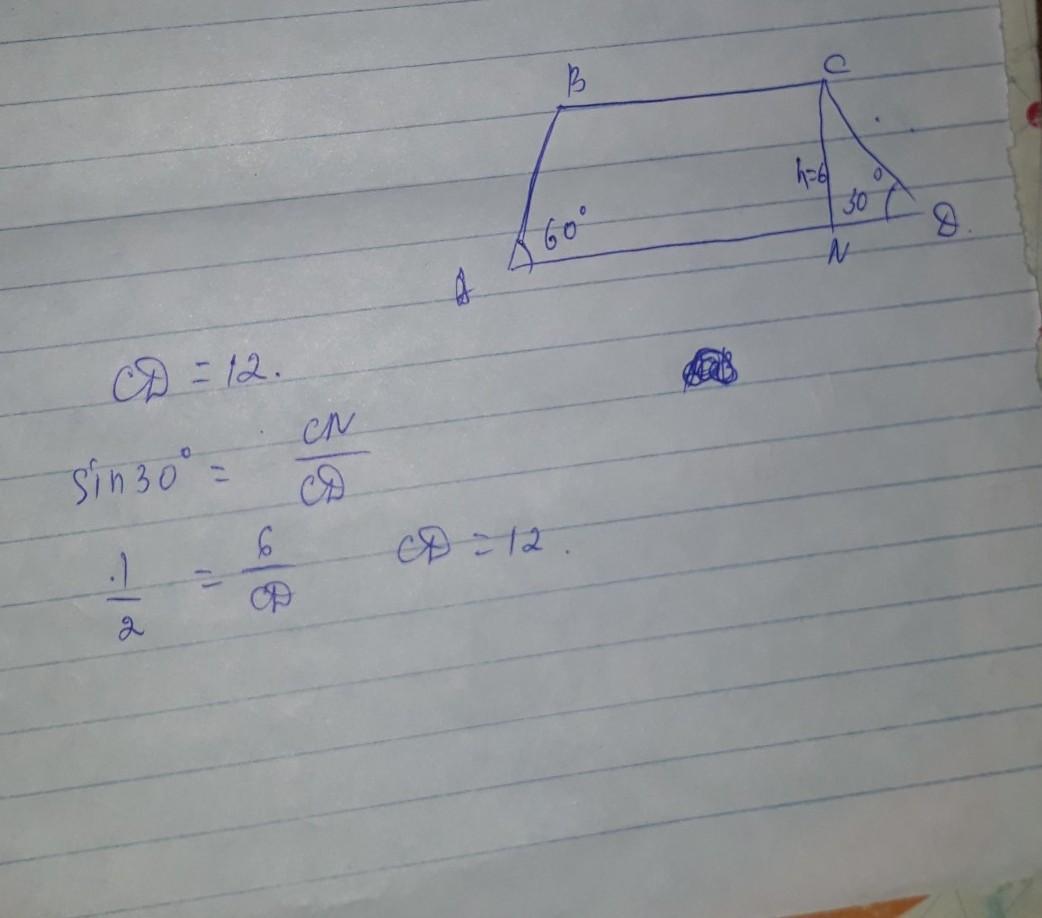 B C
h=6
60° 30°
A N D.
CD = 12.
sin30° = CN/CD
1/2 = 6/CD CD = 12.